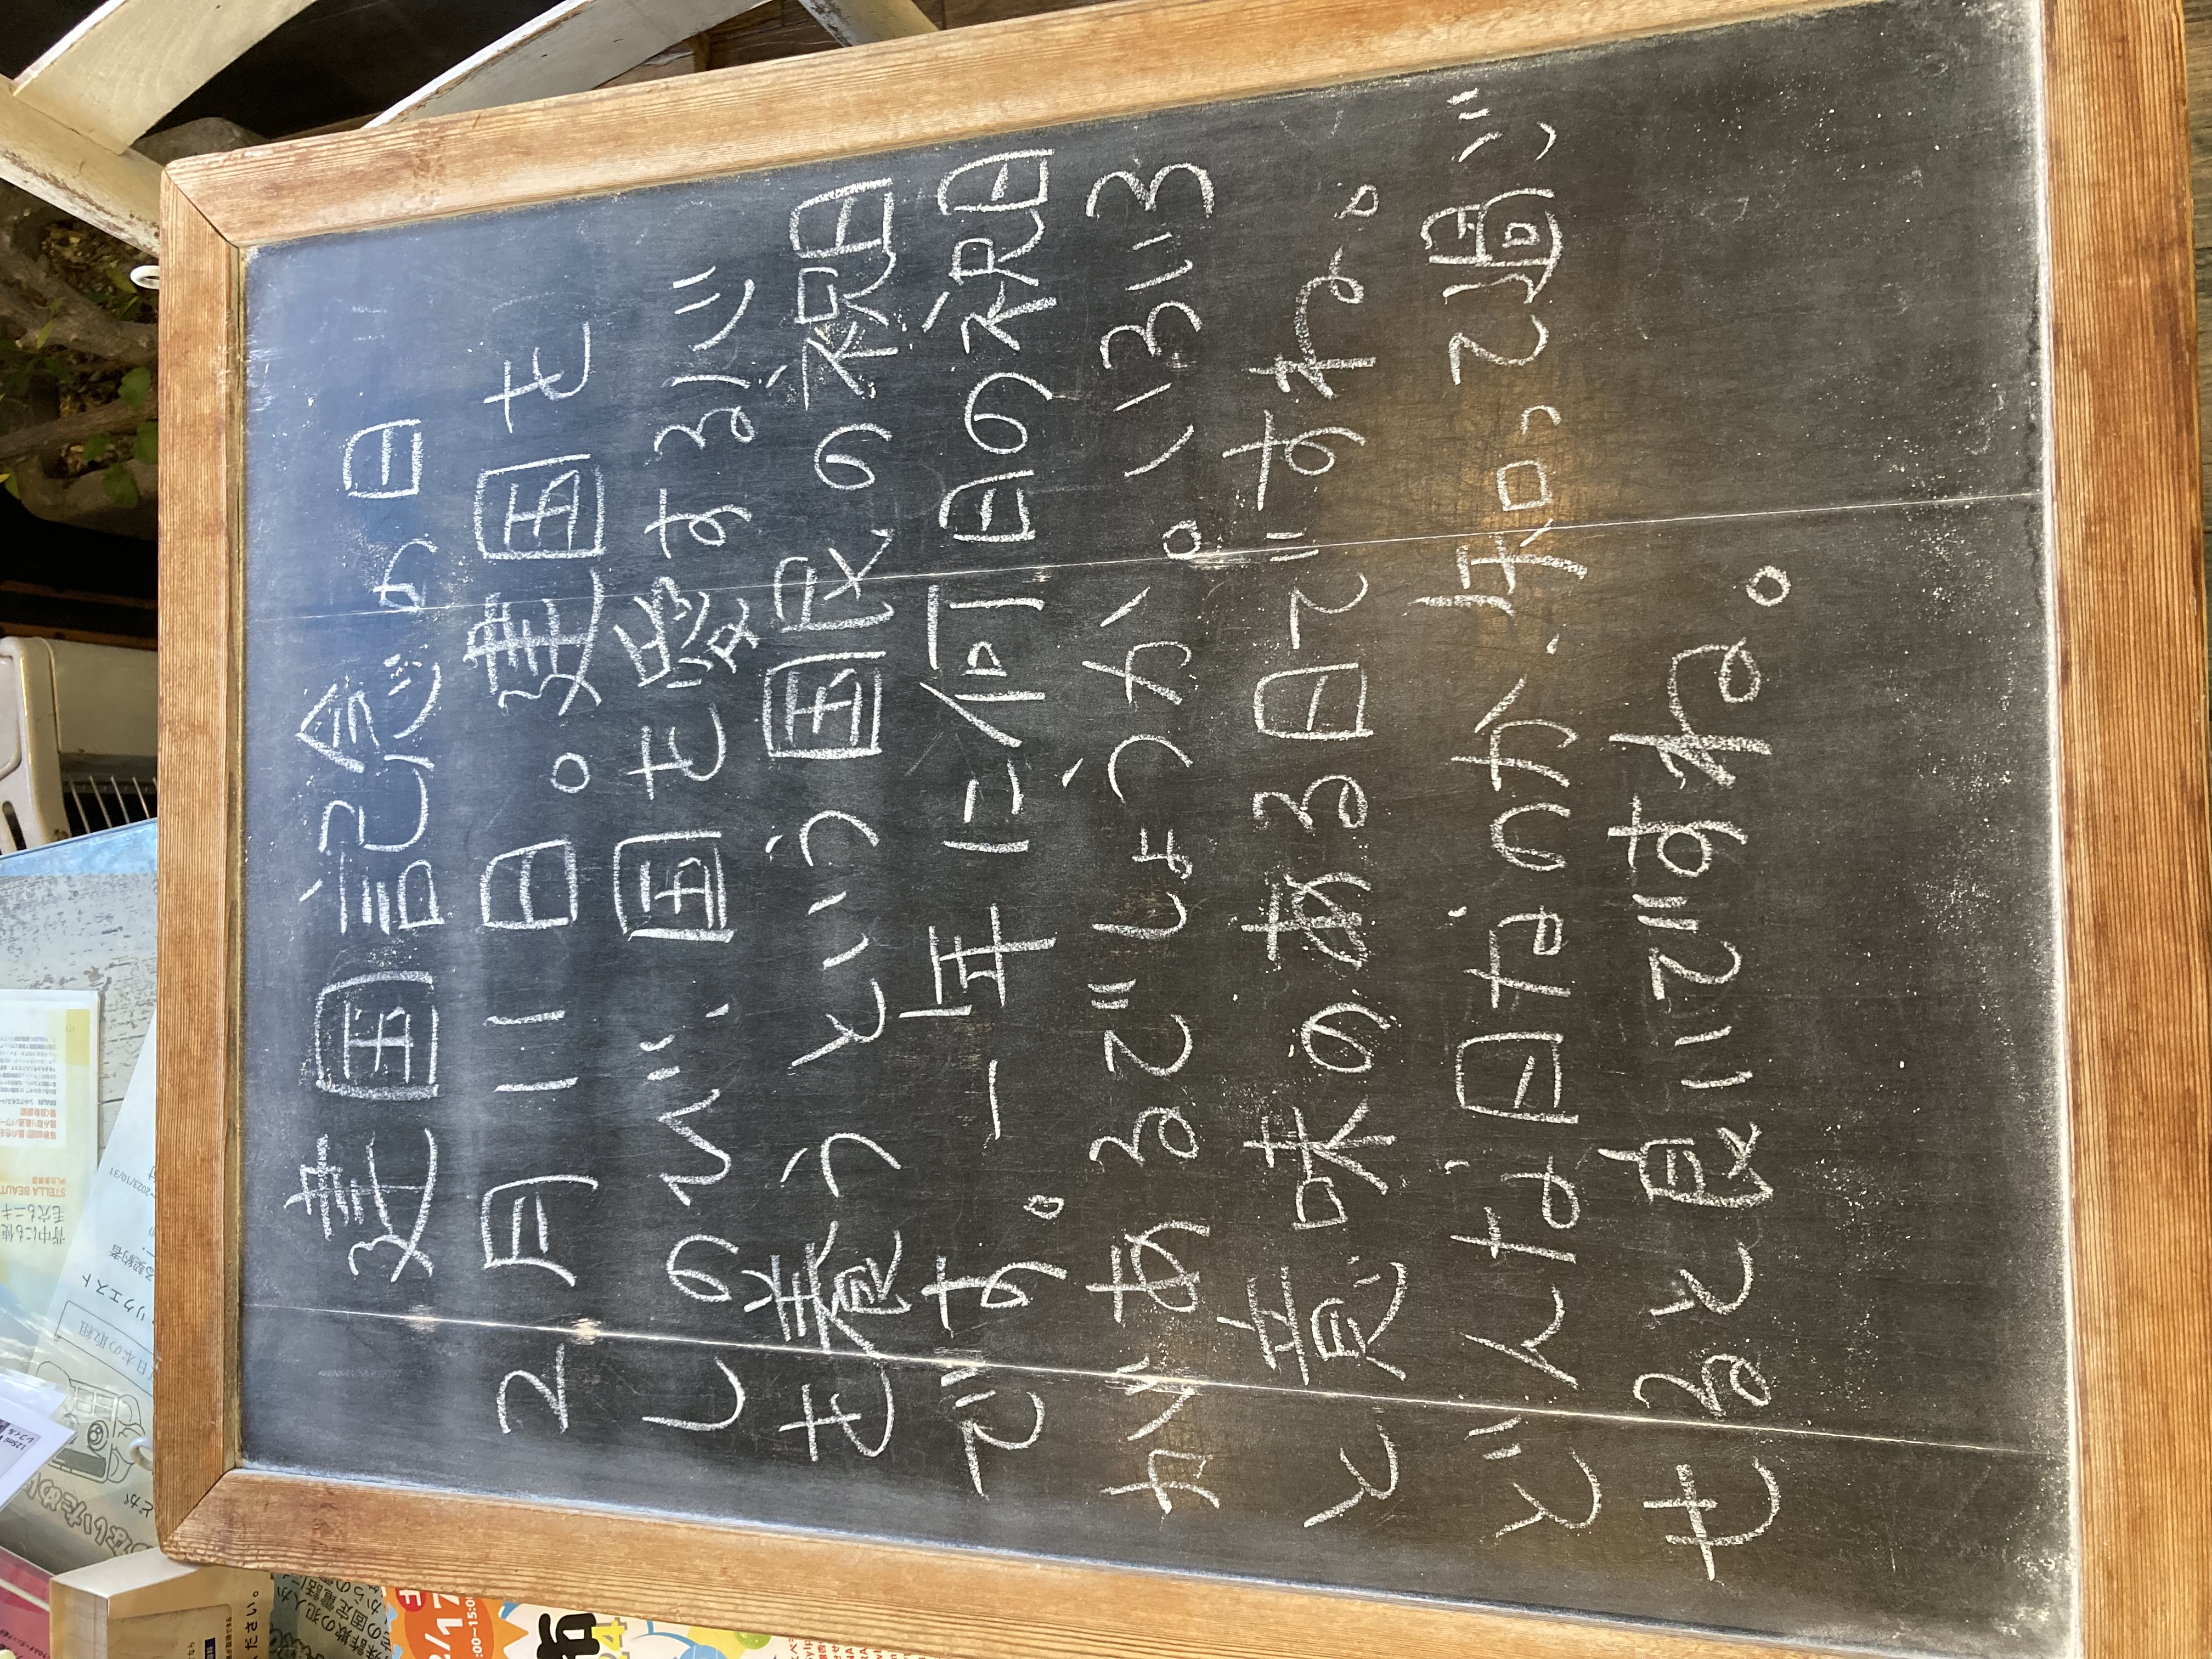 建国記念の日
2月11日。建国を
しのび、国を愛する心
を養うという国民の祝日
です。一年に何日の祝日
があるでしょうか。いろいろ
と意味のある日ですね。
どんな日なのか、知って過ご
せると良いですね。
リクエスト
日本の取組
ください。